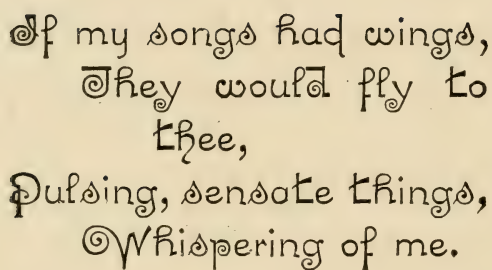 If my songs had wings,
They would fly to
thee,
Pulsing, sensate things,
Whispering of me.